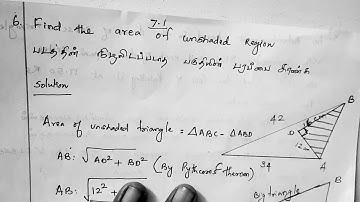 7.1
6. Find the area of unshaded Region
படத்தின் நிழலிடப்படாத பகுதியின் பரப்பை காண்க
Solution
Area of unshaded triangle = △ABC - △ABD
AB: √AD² + BD² (By Pythagoras Theorem)
AB: √12² +
B
42
D
16 cm
12 m
34
A
B
Big triangle